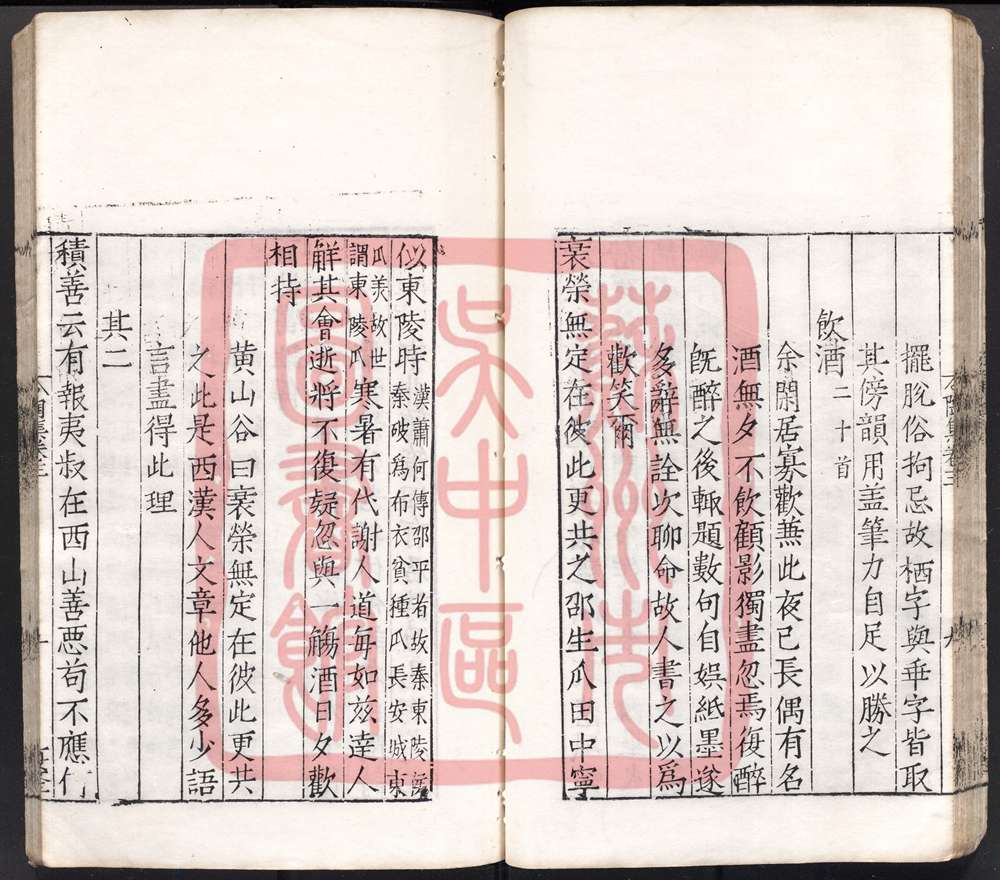 擺脫俗拘忌故栖字與垂字皆取
其傍韻用盖筆力自足以勝之
飲酒二十首
余閑居寡歡兼此夜已長偶有名
酒無夕不飲顧影獨盡忽焉復醉
旣醉之後輙題數句自娯紙墨遂
多辭無詮次聊命故人書之以爲
歡笑爾
衰榮無定在彼此更共之邵生瓜田中寧
似東陵時漢蕭何傳邵平者故秦東陵侯
秦破爲布衣貧種瓜長安城東
瓜羙故世
謂東陵瓜寒暑有代謝人道每如兹達人
觧其會逝將不復疑忽與一觴酒日夕歡
相持
黄山谷曰衰榮無定在彼此更共
之此是西漢人文章他人多少語
言盡得此理
其二
積善云有報夷叔在西山善惡苟不應何
蘇州市
吴中區
圖書館